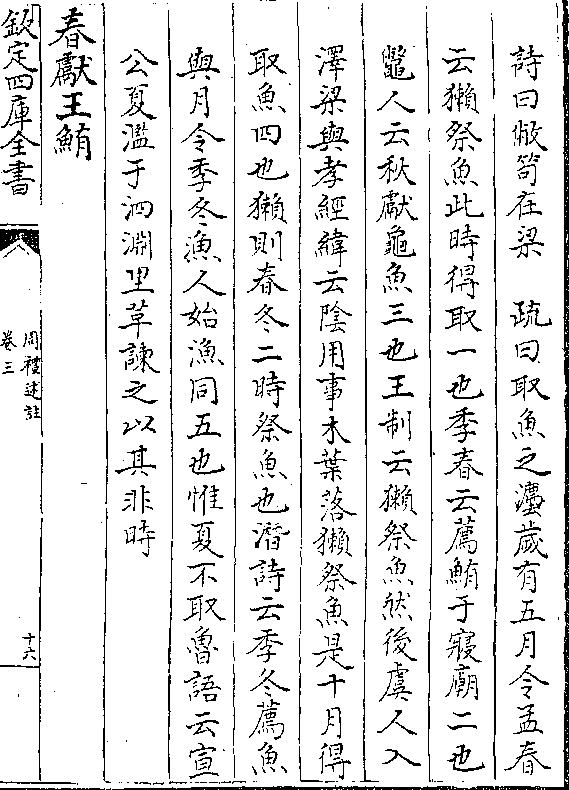 詩曰敝笱在梁　疏曰取魚之灋歲有五月令孟春
云獺祭魚此時得取一也季春云薦鮪于寢廟二也
鼈人云秋獻龜魚三也王制云獺祭魚然後虞人入
澤梁與孝經緯云陰用事木葉落獺祭魚是十月得
取魚四也獺則春冬二時祭魚也潛詩云季冬薦魚
與月令季冬漁人始漁同五也惟夏不取魯語云宣
公夏濫于泗淵里革諫之以其非時
春獻王鮪
欽定四庫全書
周禮述註
卷三
十六